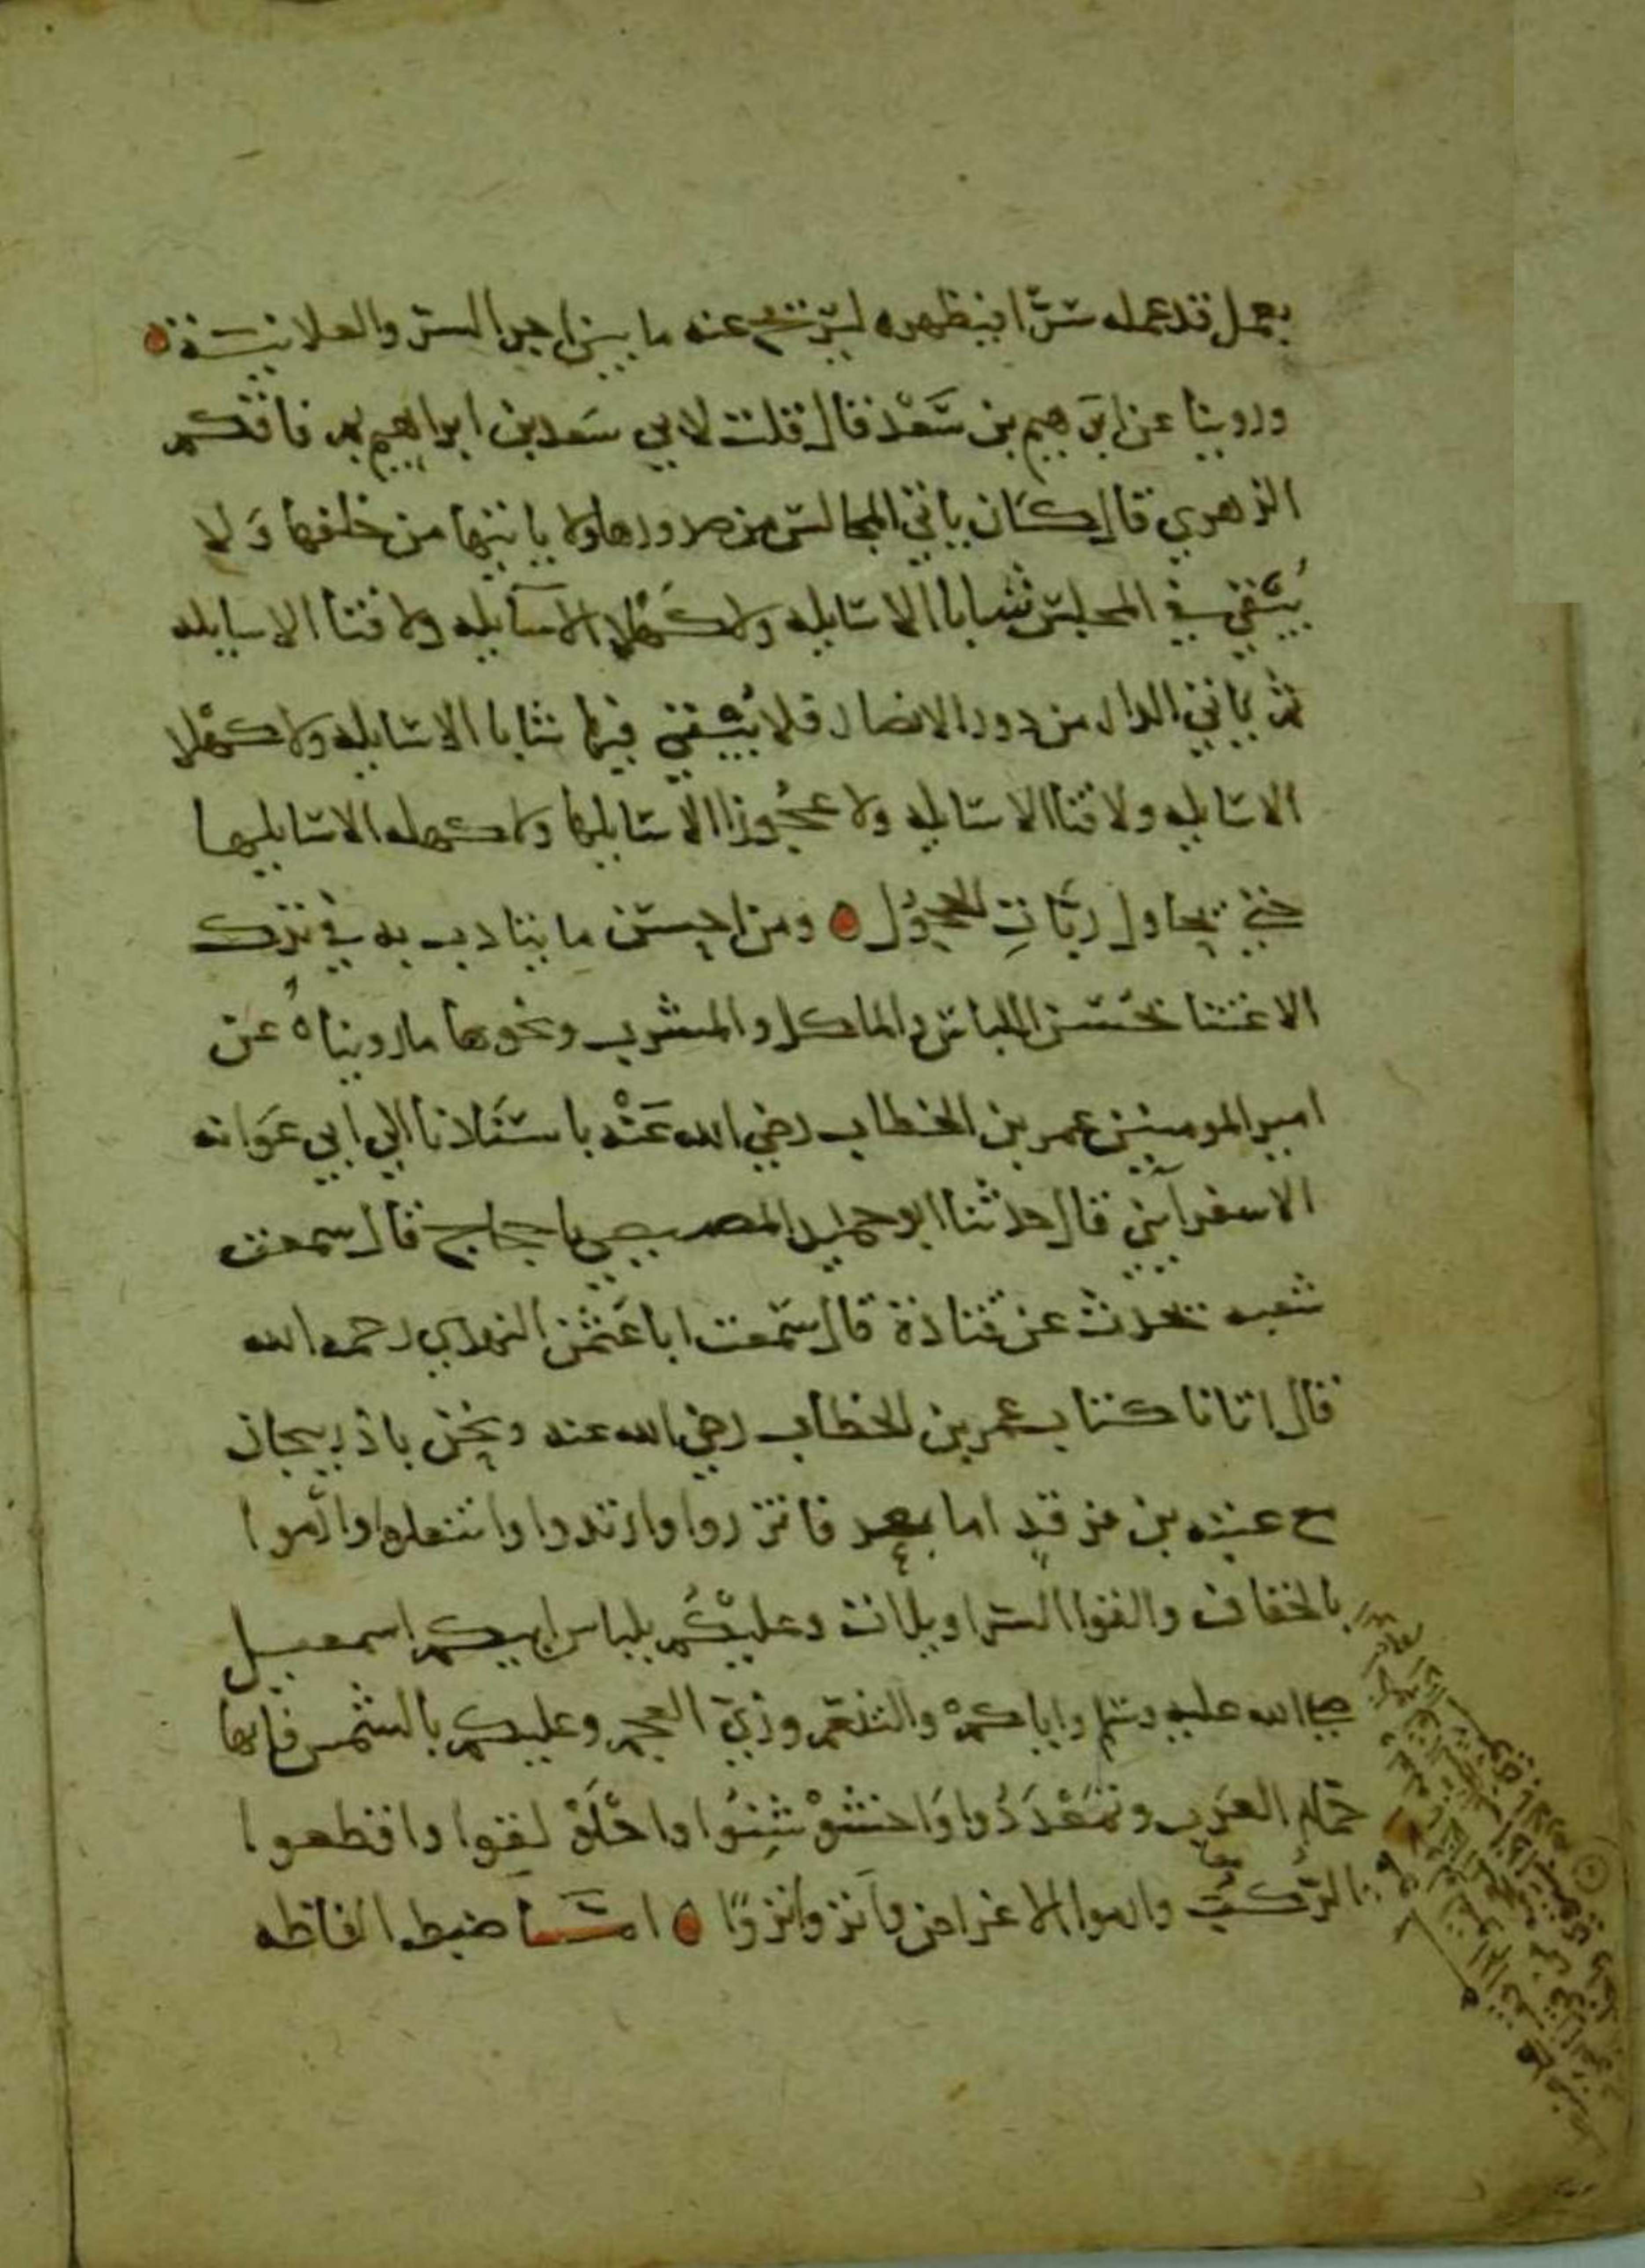 بعمل قد عمله سرا فيظهره ليربح عنه ما بين اجر السر والعلانية
وروينا عن ابرهيم بن سعد قال قلت لابي سعد بن ابراهيم بم فاقكم
الزهري قال كان ياتي المجالس من صدورها ولا ياتيها من خلفها ولا
يبقي في المجلس شابا الا سايله ولا كهلا الا سايله ولا فتا الا سايله
ثم ياتي الدار من دور الانصار فلا يبقي فيها شابا الا سايله ولا كهلا
الا سايله ولا فتا الا سايله ولا عجوزا الا سايلها ولا كهله الا سايليها
حتي يحاول ربات الحجول ومن احسن ما يتادب به في ترك
الاعتنا بحسن اللباس والماكل والمشرب ونحوها ما رويناه عن
امير المومنين عمر بن الخطاب رضي الله عنه باسنادنا الي ابي عوانه
الاسفرايني قال حدثنا ابو حميد المصيصي نا حجاج قال سمعت
شعبه يحدث عن قتادة قال سمعت ابا عثمن النهدي رحمه الله
قال اتانا كتاب عمر بن الخطاب رضي الله عنه ونحن باذربيجان
مع عتبه بن فرقد اما بعد فاتزروا وارتدوا وانتعلوا وارموا
بالخفاف والقوا السراويلات وعليكم بلباس ابيكم اسمعيل
صلي الله عليه وسلم واياكم والتنعم وزي العجم وعليكم بالشمس فانها
حمام العرب وتمعددوا واخشوشنوا واخلولقوا واقطعوا
الركب وارموا الاغراض وانزوا نزوا اما ضبط الفاظه